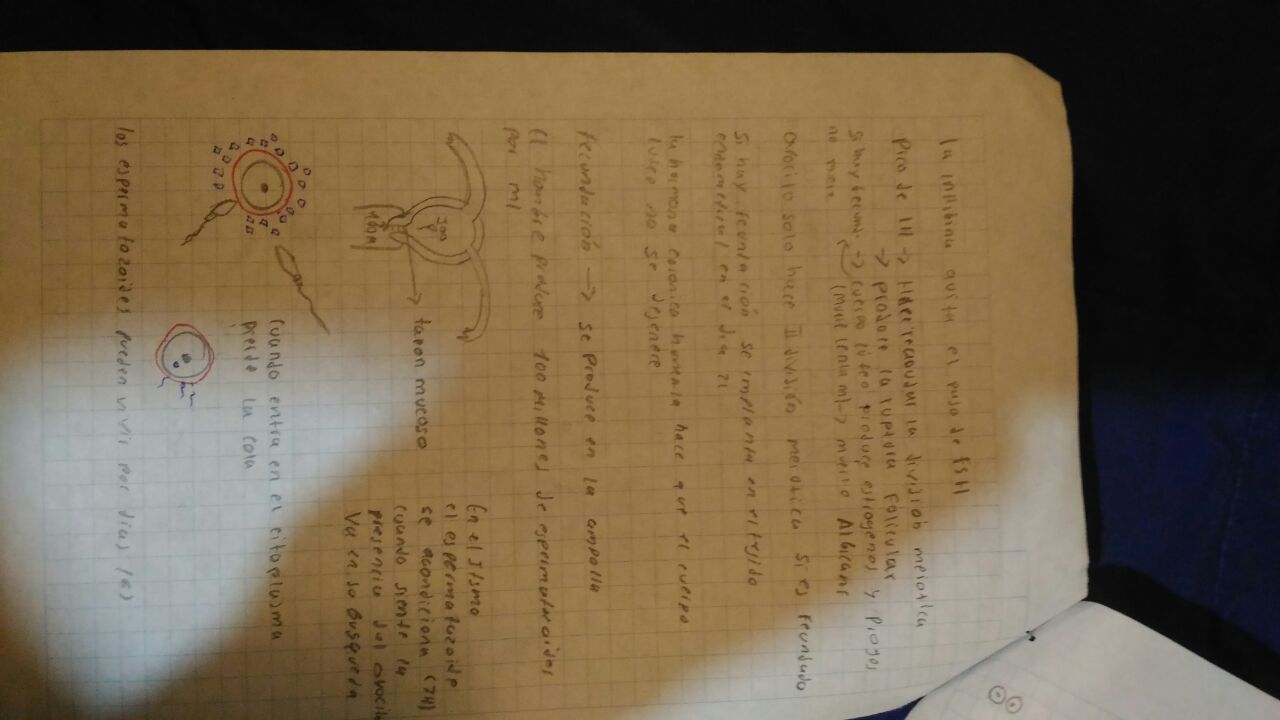 La inhibina quita el paso de FSH
Pico de LH → Hace reanudar la división meiotica
→ produce la ruptura folicular
Si hay fecund. → cuerpo lúteo produce estrogenos y proges
no → muerto Albicans
ovocito solo hace II división meiotica si es fecundado
Si hay fecundación se implanta en el tejido
endometrial en el día 21
la hormona corionica humana hace que el cuerpo
luteo no se degenere
Fecundación → se produce en la ampolla
El hombre produce 100 millones de espermatozoides
por ml
tapon mucoso
En el Istmo
el espermatozoide
se acondiciona (7H)
cuando siente la
presencia del ovocit
va en su busqueda
cuando entra en el citoplasma
pierde la cola
los espermatozoides pueden vivir por dias (6)